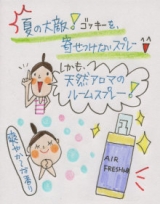 夏の大敵!ゴッキーを、
寄せつけないスプレー!
しかも、
天然アロマの
ルームスプレー♪
爽やかな香り
AIR
FRESHNER